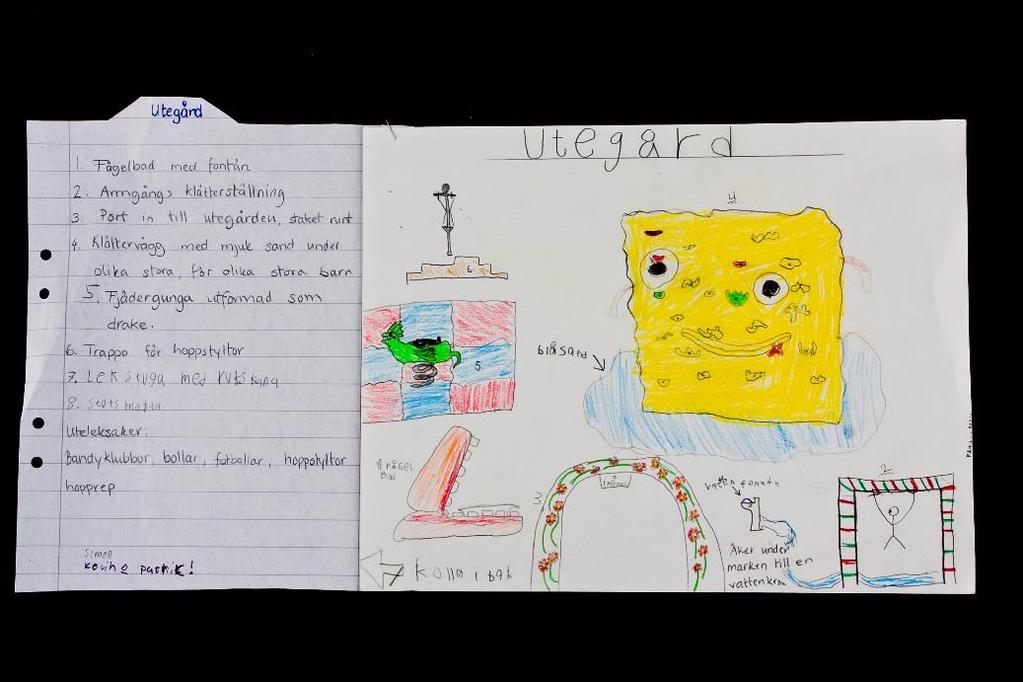 Utegård
1. Fågelbad med fontän
2. Armgång, klätterställning
3 Port in till utegården, staket runt
4. Klättervägg med mjuk sand under
olika stora, för olika stora barn
5. Fjädergunga utformad som
drake.
6. Trappa för hoppstyltor
7. Lekstuga med rutskana
8. studsmatta
Uteleksaker:
Bandyklubbor, bollar, fotbollar, hoppstyltor
hopprep
Simon
Utegård
4
6
5
blå sand
1 Fågel
Bad
3.
vatten fontän
2
Åker under
marken till en
vattenkem
7 kolla i bak